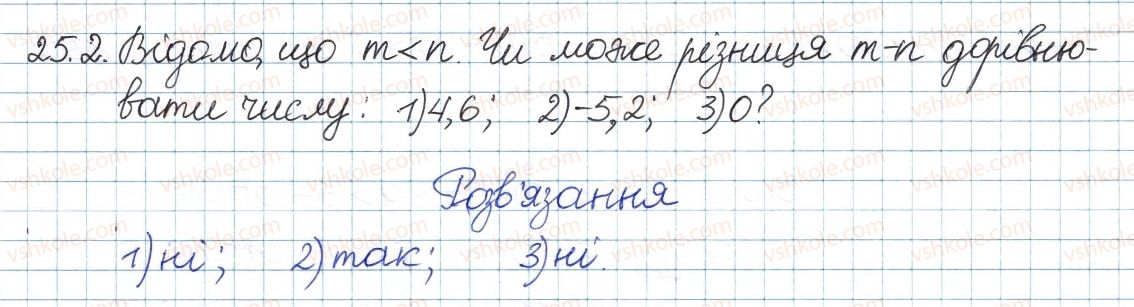 25.2. Відомо, що m<n. Чи може різниця m-n дорівню-
вати числу: 1)4,6; 2)-5,2; 3)0?
Розв'язання
1)ні; 2)так; 3)ні.